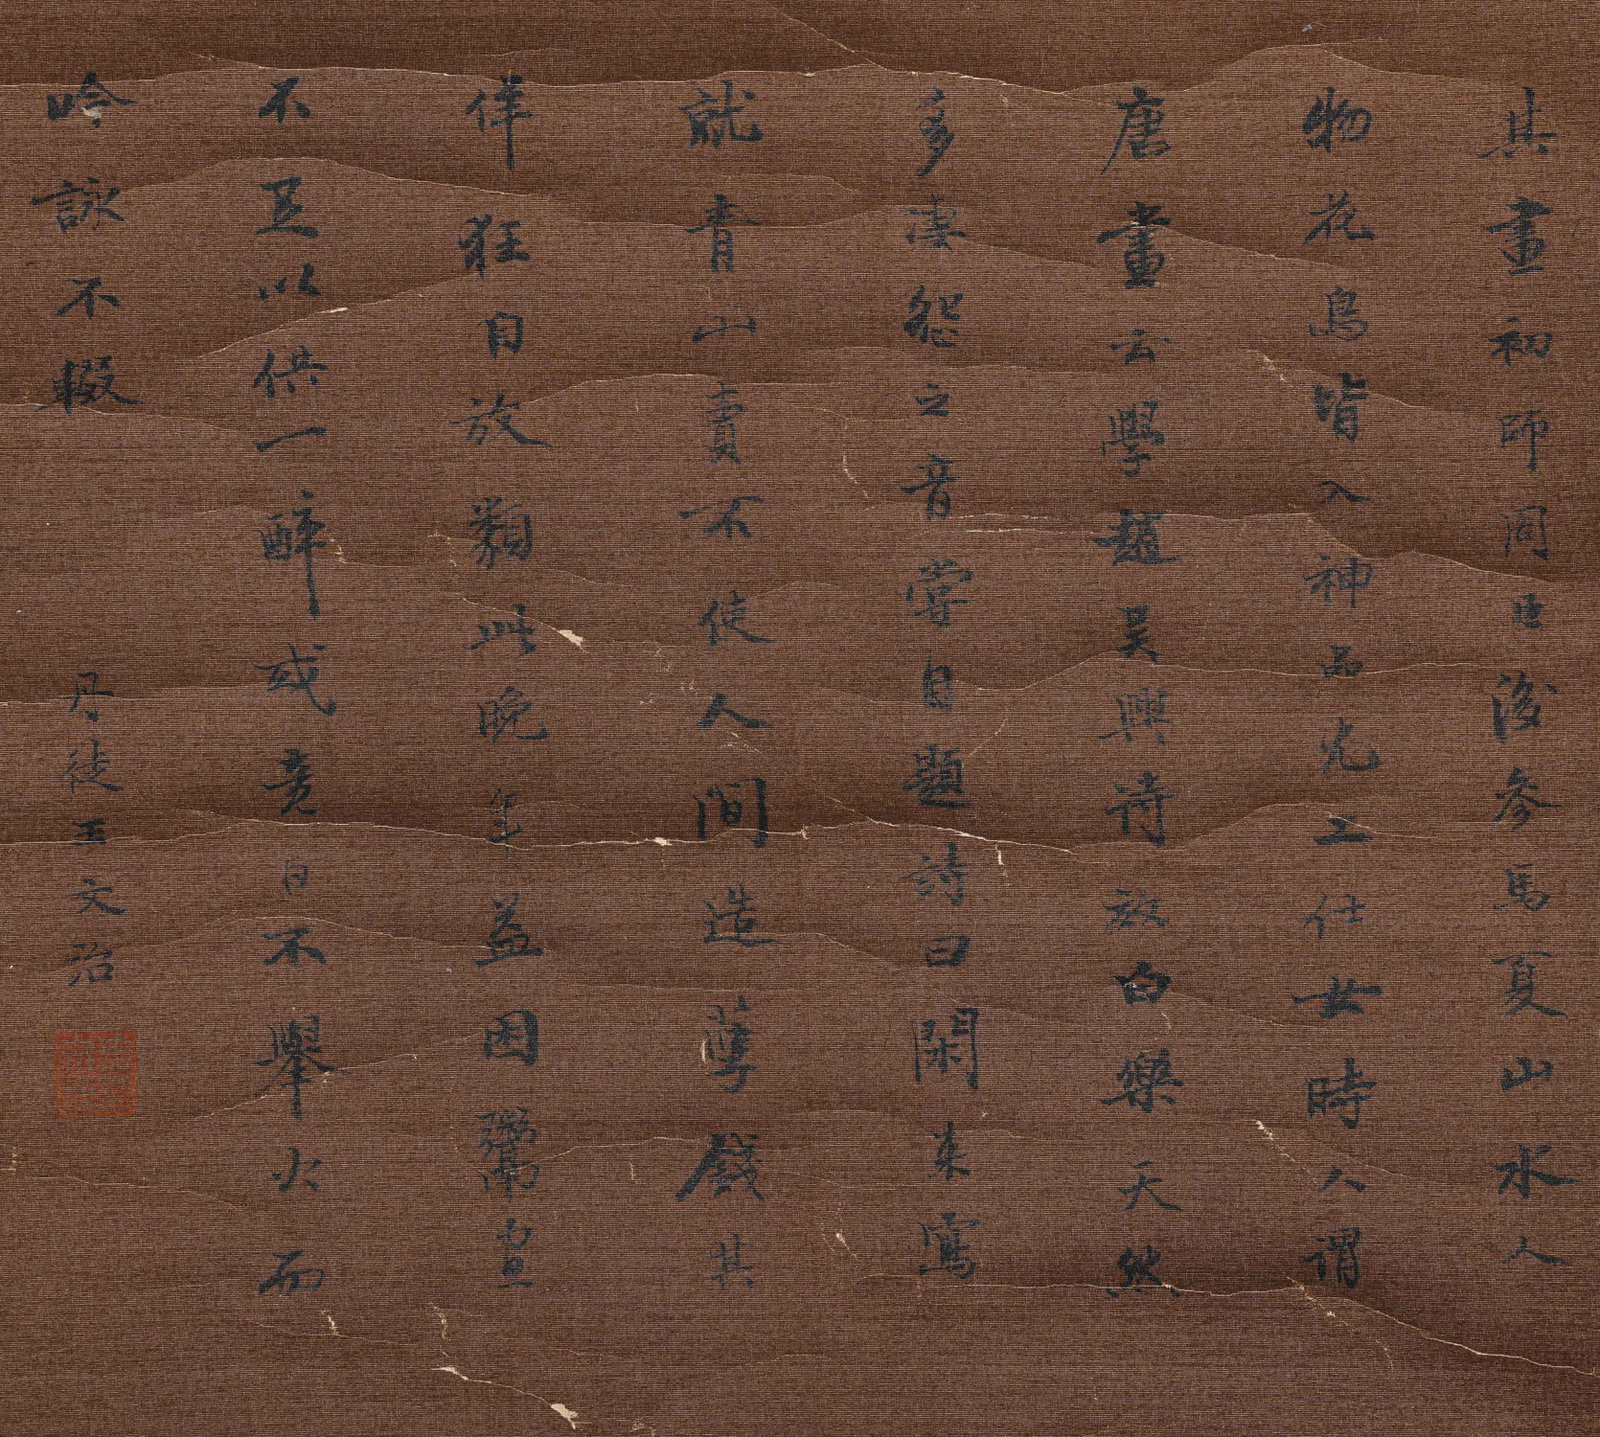 其畫初師周臣後參馬夏山水人
物花鳥皆入神品尤工仕女時人謂
唐畫云學趙吳興詩放白樂天然
多凄怨之音嘗自題詩曰閑來寫
就青山賣不使人間造孽錢其
佯狂自放類此晚年益困鬻畫
不足以供一醉或竟日不舉火而
吟詠不輟
丹徒王文治